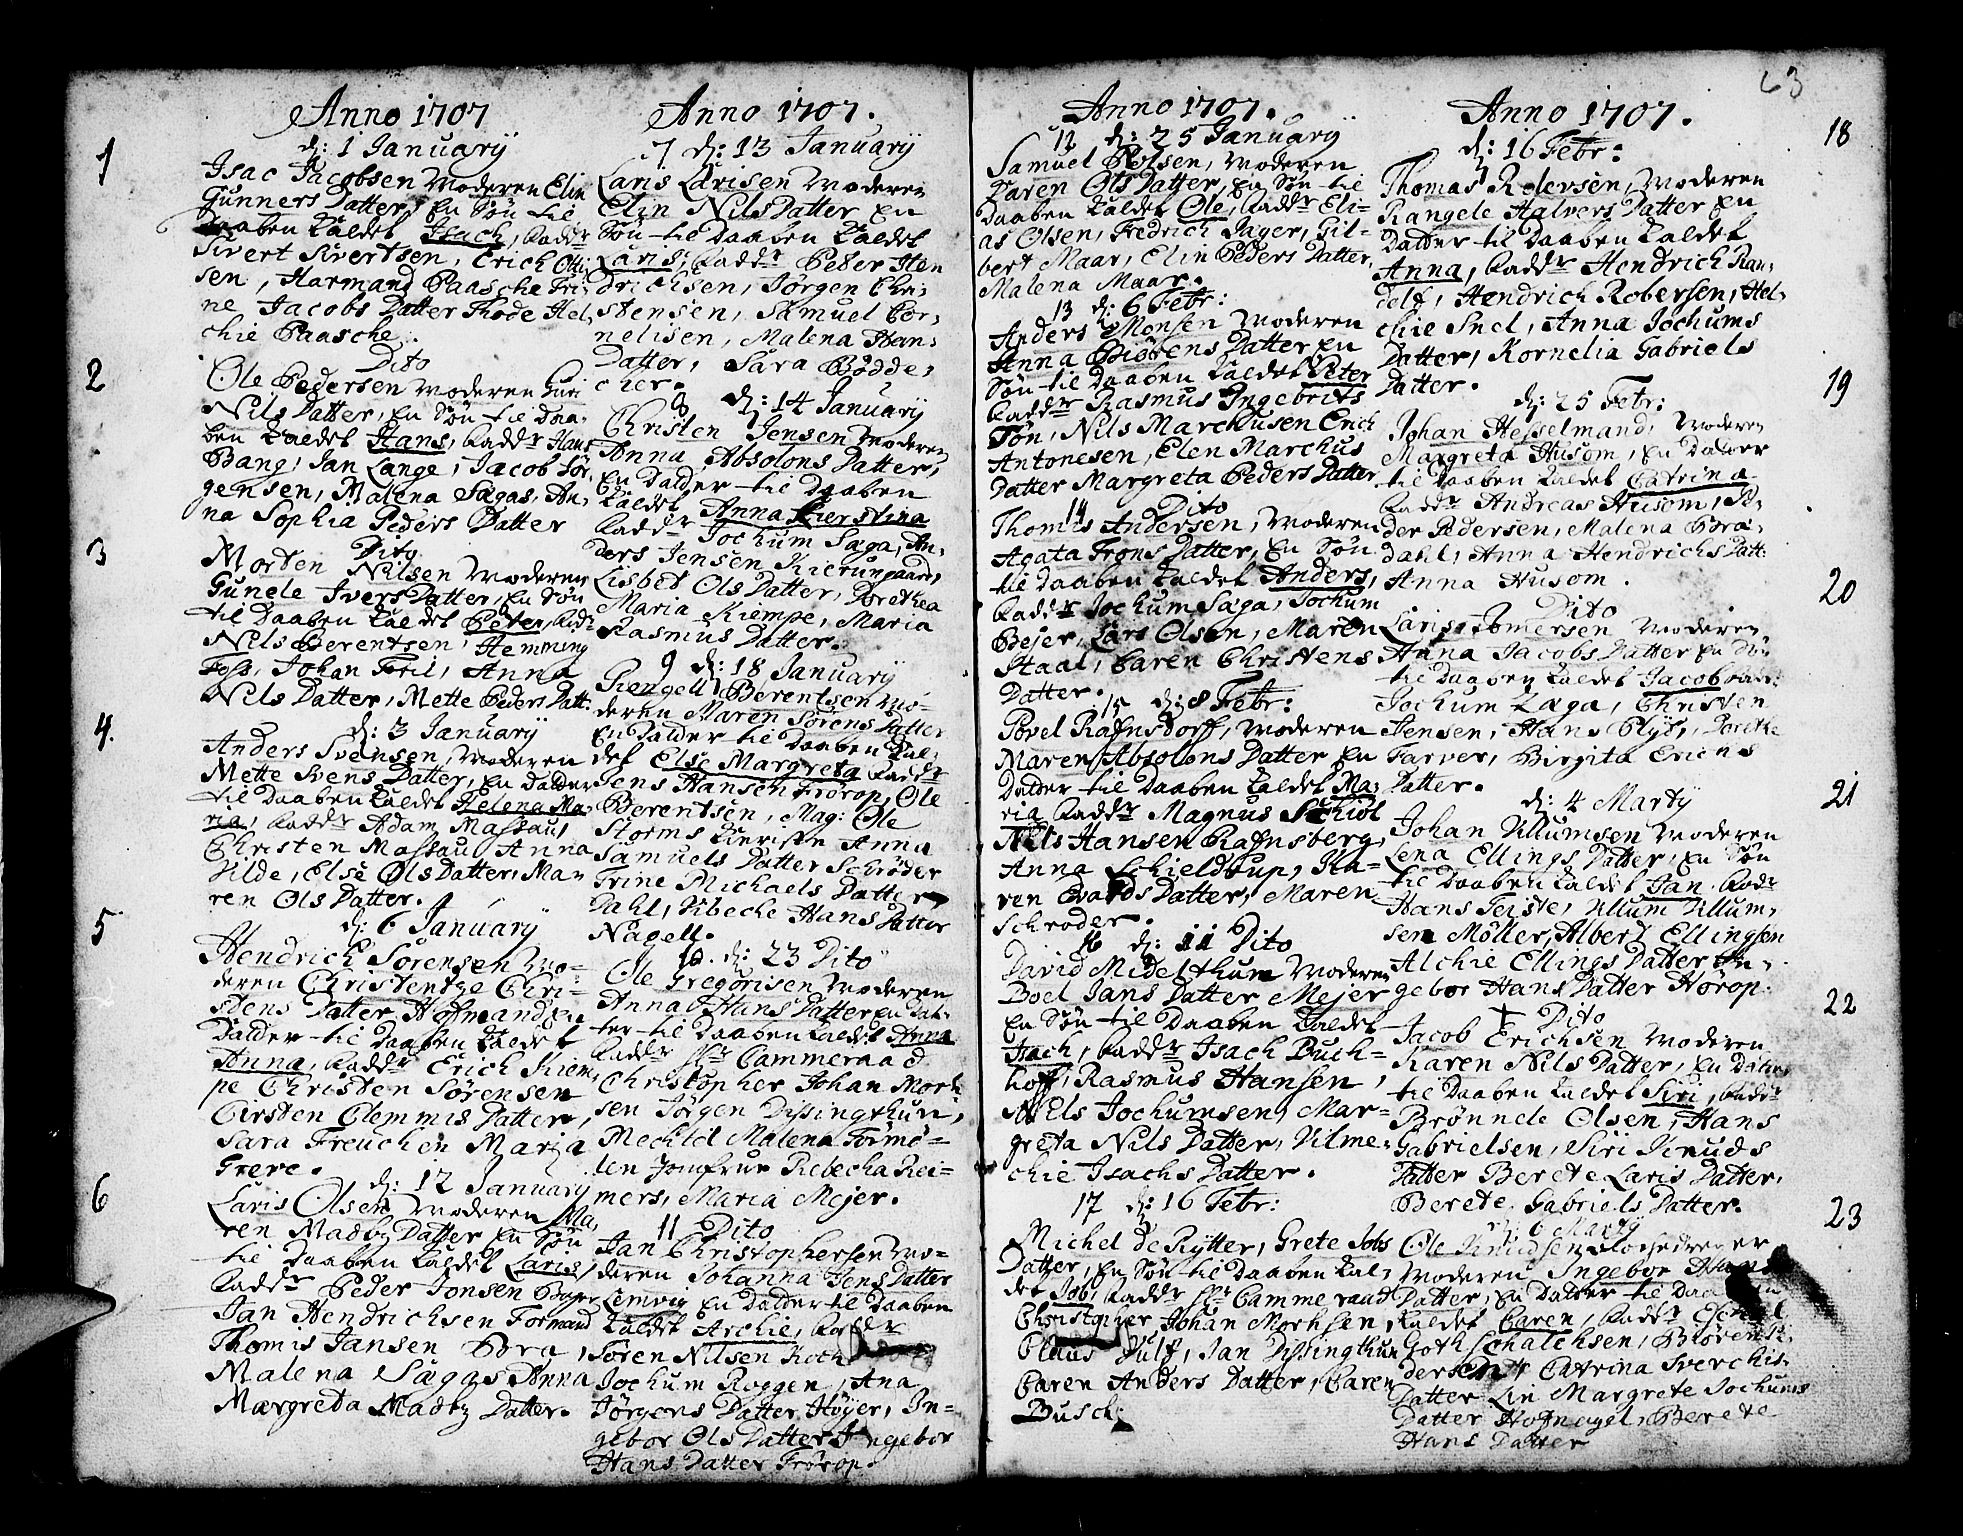 63
Anno 1707
1
d: 1 Januarÿ
Isac Jacobsen Moderen Elin
Gunners Datter, En Søn til
Daaben kaldet Isach, fadd:r
Sivert Sivertsen, Erich Otti
sen, Harmand Paasche Tri-
ne Jacobs Datter Thode Hel-
chie Paasche.
2
Dito
Ole Pedersen Moderen Guri
Nils Datter, En Søn til Daa-
ben kaldet Hans, fadd:r Hans
Bang, Jan Lange, Jacob Jør-
gensen, Malena Sagas, An-
na Sophia Peders Datter
3
Dito
Morten Nilsen Moderen
Gunele Ivers Datter, En Søn
til Daaben kaldet Peter, fad:r
Nils Berentsen, Hemming
Fess, Johan Foril, Anna
Nils Datter, Mette Peders Datt:
4.
d: 3 Januarÿ
Anders Svensen, Moderen
Mette Svens Datter, En datter
til Daaben kaldet Helena Ma-
ria, fadd:r Adam Massau,
Christen Massau Anna
Vilde, Else Ols Datter, Ma-
ren Ols Datter.
5
d: 6 Januarÿ
Hendrich Sørensen Mo-
deren Christentze Chri-
stens Datter Hofmand En
Datter til Daaben kaldet
Anna, fadd:r Erich Kiem-
pe Christen Sørensen
Cirsten Clemmis Datter,
Sara Freuchen Maria
Greve.
6
d: 12 Januarÿ
Laris Olsen Moderen Ma-
ren Madtz Datter En Søn
til Daaben kaldet Laris,
fadd:r Peder Jonsen Bager
Jan Hendrichsen Formand
Thomis Jansen Bra,
Malena Sagas Anna
Margreta Madtz Datter.
Anno 1707.
7 d: 13 Januarÿ
Laris Larisen Moderen
Elin Nils Datter En
Søn til Daaben kaldet
Laris: fadd:r Peter Hen
drichsen, Jørgen Chri-
stensen, Samuel Cor-
nelisen, Malena Han-
Datter, Sara Bødde-
cher.
8 d: 14 Januarÿ
Christen Jensen Moderen
Anna Absolons Datter,
En Datter til Daaben
kaldet Anna Kierstina
fadd:r Jochum Saga, An-
ders Jensen Kierungaard,
Lisbet Ols Datter, Dorethea
Maria Kiempe, Maria
Rasmus Datter.
9 d: 18 Januarÿ
Rengell Berentsen Mo-
deren Maren Sørens Datter
En Datter til Daaben kal-
det Else Margreta fadd:r
Jens Hansen Frørop, Ole
Berentsen, Mag: Ole
Storms Kieriste Anna
Samuels Datter Schrøder
Trine Michaels Datter
Dahl, Vibeche Hans Datter
Nagell.
10. d: 23 Dito
Ole Gregorisen Moderen
Anna Hans Datter En Dat-
ter til Daaben kaldet Anna
fadd:r Hr Cammeraad
Christopher Johan Morh-
sen Jørgen Dissingthun,
Mechild Malena Tormø-
len Jomfrue Rebecha Rei-
mers, Maria Mejer.
11 Dito
Jan Christophersen Mo-
deren Johanna Jens Datter
Lemvig En Datter til Daaben
kaldet Archie, fadd:r
Søren Nilsen Koch
Jochum Roggen, Ana
Jørgens Datter Høyer, In-
gebor Ols Datter Ingebor
Hans Datter Frørop.
Anno 1707.
12 d: 25 Januarÿ
Samuel Polsen, Moderen
Karen Ols Datter, En Søn til
Daaben kaldet Ole, fadd:r Eli-
as Olsen, Fredrich Jager, Gil-
bert Maar, Elin Peders Datter,
Malena Maar.
13 d: 6 Febr:
Anders Monsen Moderen
Anna Biørens Datter En
Søn til Daaben kaldet Peter
fadd:r Rasmus Ingebrits
Søn, Nils Marchusen Erich
Antonesen, Elen Marchus
Datter Margreta Peders Datter
14 Dito
Thomis Andersen, Moderen
Agata Trons Datter, En Søn
til Daaben kaldet Anders,
fadd:r Jochum Saga, Jochum
Bejer, Lars Olsen, Maren
Staal, Caren Christens
Datter.
15 d: 8 Febr:
Povel Rafnsdorff, Moderen
Maren Absolons Datter En
Datter til Daaben kaldet Ma-
ria fadd:r Magnus Schiøt
Nils Hansen Rafnsberg,
Anna Schieldrup, Ka-
ren Baards Datter, Maren
Schrøder.
16 d: 11 Dito
David Midelthum Moderen
Boel Jans Datter Mejer
En Søn til Daaben kaldet
Isach, fadd:r Isach Buch-
hoff, Rasmus Hansen,
Niels Jochumsen, Mar-
greta Nils Datter, Vilme-
chie Isachs Datter.
17 d: 16 Febr:
Michel de Rÿtter, Grete Jobs
Datter, En Søn til Daaben kal-
det Job, fadd:r Hr Cammeraad
Christopher Johan Morhsen,
Claus Vulf, Jan Dissingthun
Caren Anders Datter, Caren
Busch.
Anno 1707.
18
d: 16 Febr:
Thomas Rolevsen, Moderen
Rangele Halvers Datter En
Datter til Daaben kaldet
Anna, fadd:r Hendrich Ran-
delf, Hendrich Robersen, Hel-
chie Snel, Anna Jochums
Datter, Kornelia Gabriels
Datter.
19
d: 25 Febr:
Johan Hesselmand, Moderen
Margreta Husom, En Datter
til Daaben kaldet Catrina
fadd:r Andreas Husom, Pe-
der Pedersen, Malena Bra-
dahl, Anna Hendrichs Datt:
Anna Husom.
20
Dito
Laris Tomersen Moderen
Anna Jacobs Datter En Søn
til Daaben kaldet Jacob fad:r
Jochum Laga, Christen
Jensen, Hans Blÿt, Berethe
Farver, Birgita Erichs
Datter.
21
d: 4 Martÿ
Johan Villumsen Moderen
Lena Ellings Datter, En Søn
til Daaben kaldet Jan, fad:r
Hans Teiste, Villum Villum-
sen Møller, Albert Ellingsen
Alchie Ellings Datter In-
gebor Hans Datter Hørop.
22
† Dito
Jacob Erichsen Moderen
Karen Nils Datter, En Datter
til Daaben kaldet Siri, fadd:r
Brønnele Olsen, Hans
Gabrielsen, Siri Knuds
Datter Berete Laris Datter,
Berete Gabriels Datter.
23
d: 6 Martÿ
Ole Knudsen Klochedreger
Moderen Ingebor Hans
Datter, En Datter til Daaben
kaldet Caren, fadd:r
Gothschalchsen, Biøren
dersen, Catrina Sverchis-
Datter Lin Margrete Jochums
Datter Hofnagel, Berete
Hans Datter